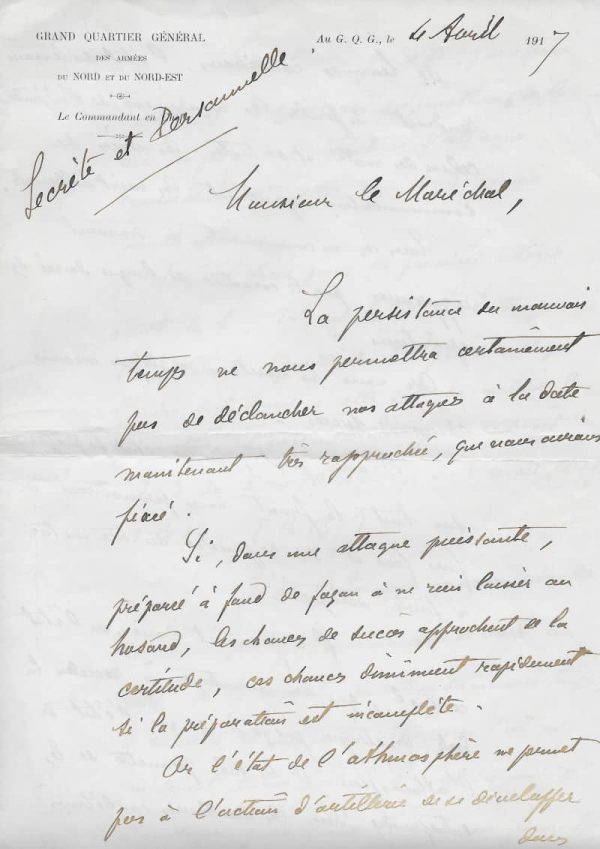 GRAND QUARTIER GÉNÉRAL
DES ARMÉES
DU NORD ET DU NORD-EST
Le Commandant en
Au G. Q. G., le 4 Avril 1917
Secrète et Personnelle
Monsieur le Maréchal,
La persistance du mauvais
temps ne nous permettra certainement
pas de déclancher nos attaques à la date
maintenant très rapprochée, que nous avions
fixée.
Si, dans une attaque puissante,
préparée à fond de façon à ne rien laisser au
hasard, les chances de succès approchent de la
certitude, ces chances diminuent rapidement
si la préparation est incomplète.
Or l'état de l'athmosphère ne permet
pas à l'action d'artillerie de se développer
dans